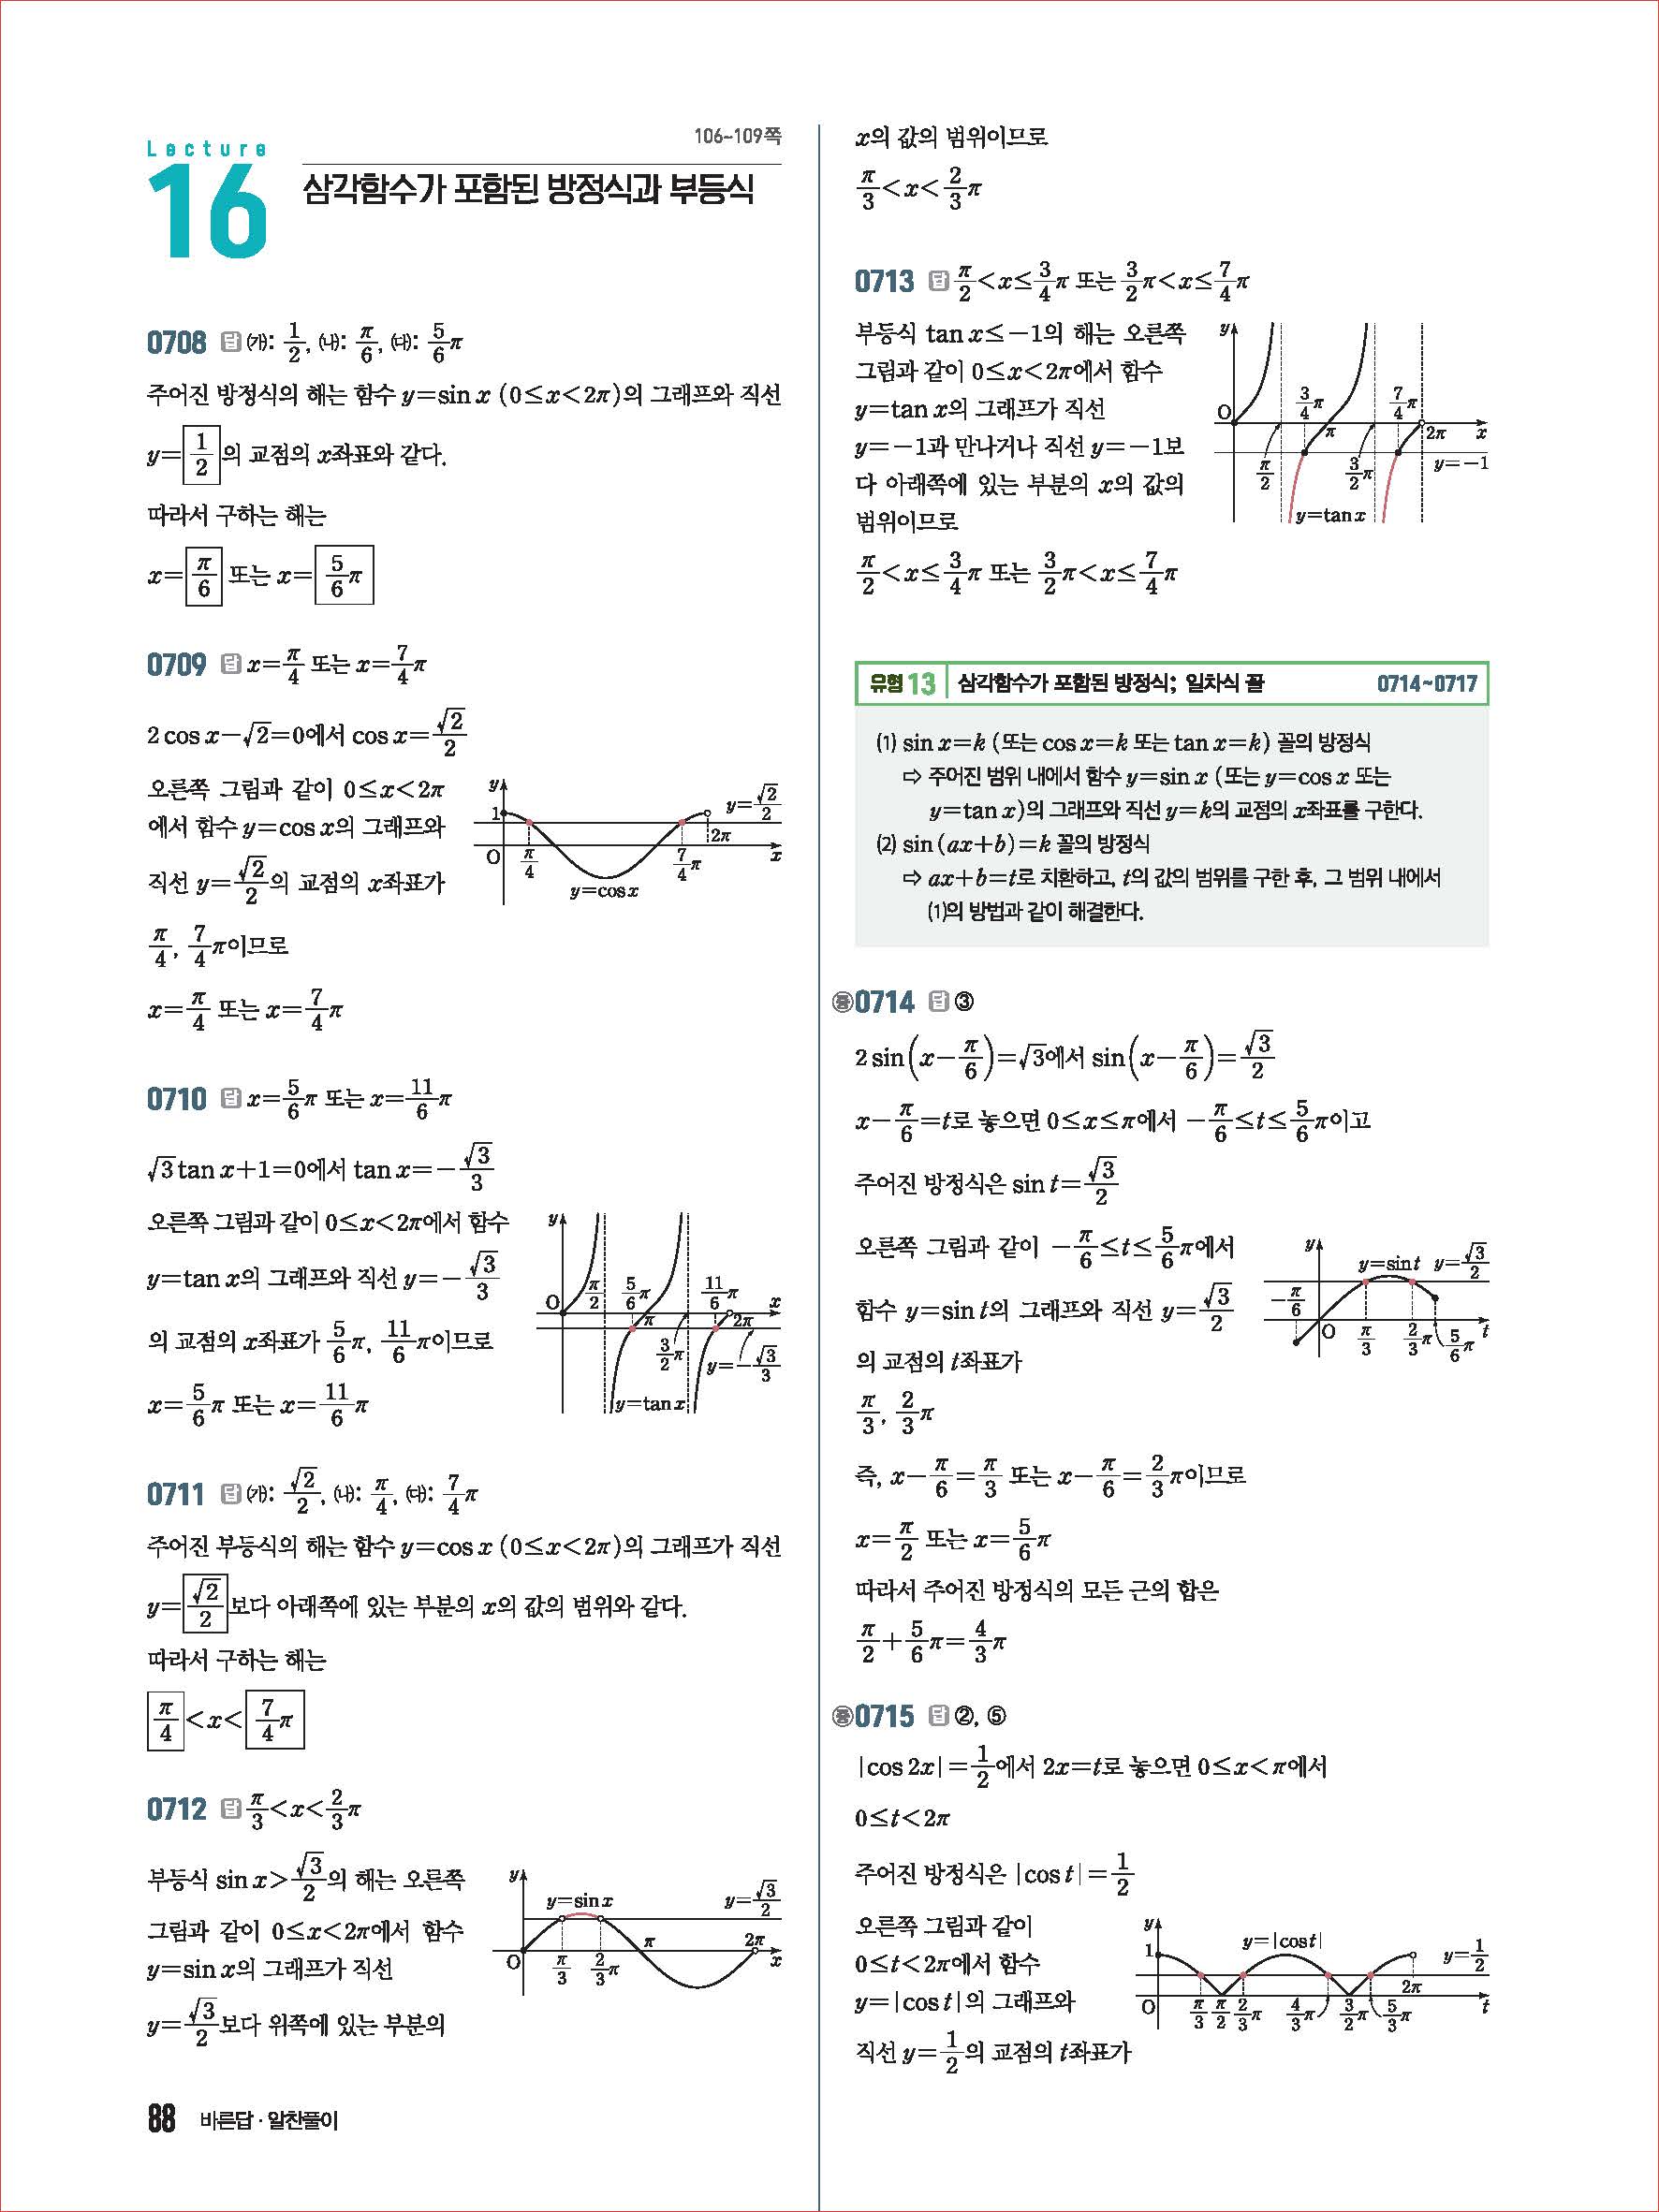 106~109쪽
Lecture
16 삼각함수가 포함된 방정식과 부등식
0708 답 ㈎: 1/2, ㈏: π/6, ㈐: 5/6 π
주어진 방정식의 해는 함수 y=sin x (0≤x<2π)의 그래프와 직선
y= 1/2 의 교점의 x좌표와 같다.
따라서 구하는 해는
x= π/6 또는 x= 5/6 π
0709 답 x=π/4 또는 x=7/4 π
2 cos x-√2=0에서 cos x=√2/2
오른쪽 그림과 같이 0≤x<2π
에서 함수 y=cos x의 그래프와
직선 y=√2/2의 교점의 x좌표가
π/4, 7/4 π이므로
x=π/4 또는 x=7/4 π
y
1
y=√2/2
2π
O
π/4
7/4 π
x
y=cos x
0710 답 x=5/6 π 또는 x=11/6 π
√3 tan x+1=0에서 tan x=-√3/3
오른쪽 그림과 같이 0≤x<2π에서 함수
y=tan x의 그래프와 직선 y=-√3/3
의 교점의 x좌표가 5/6 π, 11/6 π이므로
x=5/6 π 또는 x=11/6 π
y
O
π/2
5/6 π
π
11/6 π
x
2π
3/2 π
y=-√3/3
y=tan x
0711 답 ㈎: √2/2, ㈏: π/4, ㈐: 7/4 π
주어진 부등식의 해는 함수 y=cos x (0≤x<2π)의 그래프가 직선
y= √2/2 보다 아래쪽에 있는 부분의 x의 값의 범위와 같다.
따라서 구하는 해는
π/4 <x< 7/4 π
0712 답 π/3<x<2/3 π
부등식 sin x>√3/2의 해는 오른쪽
그림과 같이 0≤x<2π에서 함수
y=sin x의 그래프가 직선
y=√3/2보다 위쪽에 있는 부분의
y
y=sin x
y=√3/2
O
π/3
2/3 π
π
2π
x
88 바른답 · 알찬풀이
x의 값의 범위이므로
π/3<x<2/3 π
0713 답 π/2<x≤3/4 π 또는 3/2 π<x≤7/4 π
부등식 tan x≤-1의 해는 오른쪽
그림과 같이 0≤x<2π에서 함수
y=tan x의 그래프가 직선
y=-1과 만나거나 직선 y=-1보
다 아래쪽에 있는 부분의 x의 값의
범위이므로
π/2<x≤3/4 π 또는 3/2 π<x≤7/4 π
y
O
3/4 π
7/4 π
π
2π
x
π/2
3/2 π
y=-1
y=tan x
유형 13 삼각함수가 포함된 방정식; 일차식 꼴 0714~0717
⑴ sin x=k (또는 cos x=k 또는 tan x=k) 꼴의 방정식
⇨ 주어진 범위 내에서 함수 y=sin x (또는 y=cos x 또는
y=tan x)의 그래프와 직선 y=k의 교점의 x좌표를 구한다.
⑵ sin (ax+b)=k 꼴의 방정식
⇨ ax+b=t로 치환하고, t의 값의 범위를 구한 후, 그 범위 내에서
⑴의 방법과 같이 해결한다.
㊥0714 답 ③
2 sin(x-π/6)=√3에서 sin(x-π/6)=√3/2
x-π/6=t로 놓으면 0≤x≤π에서 -π/6≤t≤5/6 π이고
주어진 방정식은 sin t=√3/2
오른쪽 그림과 같이 -π/6≤t≤5/6 π에서
함수 y=sin t의 그래프와 직선 y=√3/2
의 교점의 t좌표가
π/3, 2/3 π
y
y=sin t
y=√3/2
-π/6
O
π/3
2/3 π
5/6 π
t
즉, x-π/6=π/3 또는 x-π/6=2/3 π이므로
x=π/2 또는 x=5/6 π
따라서 주어진 방정식의 모든 근의 합은
π/2+5/6 π=4/3 π
㊥0715 답 ②, ⑤
|cos 2x|=1/2에서 2x=t로 놓으면 0≤x<π에서
0≤t<2π
주어진 방정식은 |cos t|=1/2
오른쪽 그림과 같이
0≤t<2π에서 함수
y=|cos t|의 그래프와
직선 y=1/2의 교점의 t좌표가
y
1
y=|cos t|
y=1/2
O
π/3
π/2
2/3 π
4/3 π
3/2 π
5/3 π
2π
t